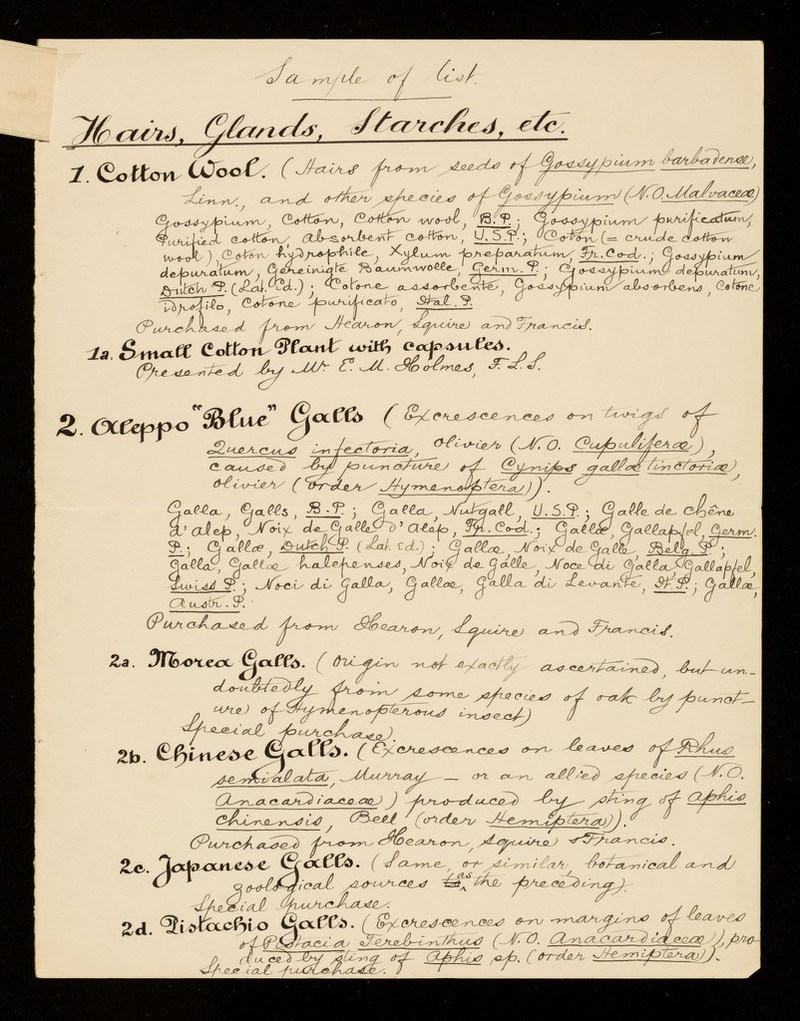 Sample of list.
Hairs, Glands, Starches, etc.
1. Cotton Wool. (Hairs from seeds of Gossypium barbadense,
Linn., and other species of Gossypium (N.O. Malvaceæ)
Gossypium, Cotton, Cotton wool, B.P.; Gossypium purificatum,
Purified cotton, Absorbent cotton, U.S.P.; Coton (= crude cotton
wool), Coton hydrophile, Xylum preparatum, Fr. Cod.; Gossypium
depuratum, Gereinigte Baumwolle, Germ. P.; Gossypium depuratum,
Dutch P. (Lat. Ed.); Cotone assorbente, Gossypium absorbens, Cotone
idrofilo, Cotone purificato, Ital. P.
Purchased from Hearon, Squire and Francis.
1a. Small Cotton Plant with capsules.
Presented by Mr. E. M. Holmes, F.L.S.
2. Aleppo "Blue" Galls (Excrescences on twigs of
Quercus infectoria, Olivier (N.O. Cupuliferæ),
caused by puncture of Cynips gallæ tinctoriæ,
Olivier (order Hymenoptera)).
Galla, Galls, B.P.; Galla, Nutgall, U.S.P.; Galle de chêne
d'Alep, Noix de Galle d'Alep, Fr. Cod.; Gallæ, Gallapfel, Germ.
P.; Gallæ, Dutch P. (Lat. Ed.); Gallæ, Noix de Galle, Belg. P.;
Galla, Gallæ halepenses, Noix de Galle, Noce di Galla, Gallapfel,
Swiss P.; Noci di Galla, Gallæ, Galla di Levante, It. P.; Gallæ,
Austr. P.
Purchased from Hearon, Squire and Francis.
2a. Morea Galls. (Origin not exactly ascertained, but un-
doubtedly from some species of oak by punct-
ure of Hymenopterous insect)
Special purchase.
2b. Chinese Galls. (Excrescences on leaves of Rhus
semialata, Murray - or an allied species (N.O.
Anacardiaceæ) produced by sting of Aphis
chinensis, Bell (order Hemiptera)).
Purchased from Hearon, Squire & Francis.
2c. Japanese Galls. (Same, or similar, botanical and
zoological sources as the preceding).
Special purchase.
2d. Pistachio Galls. (Excrescences on margins of leaves
of Pistacia Terebinthus (N.O. Anacardiaceæ), pro-
duced by sting of Aphis sp. (order Hemiptera)).
Special purchase.